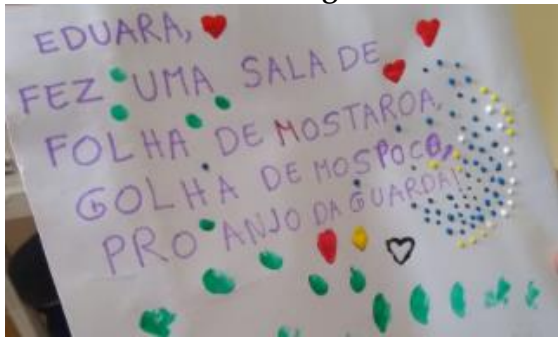 EDUARA,
FEZ UMA SALA DE
FOLHA DE MOSTAROA,
GOLHA DE MOSPOCO,
PRO ANJO DA GUARDA!